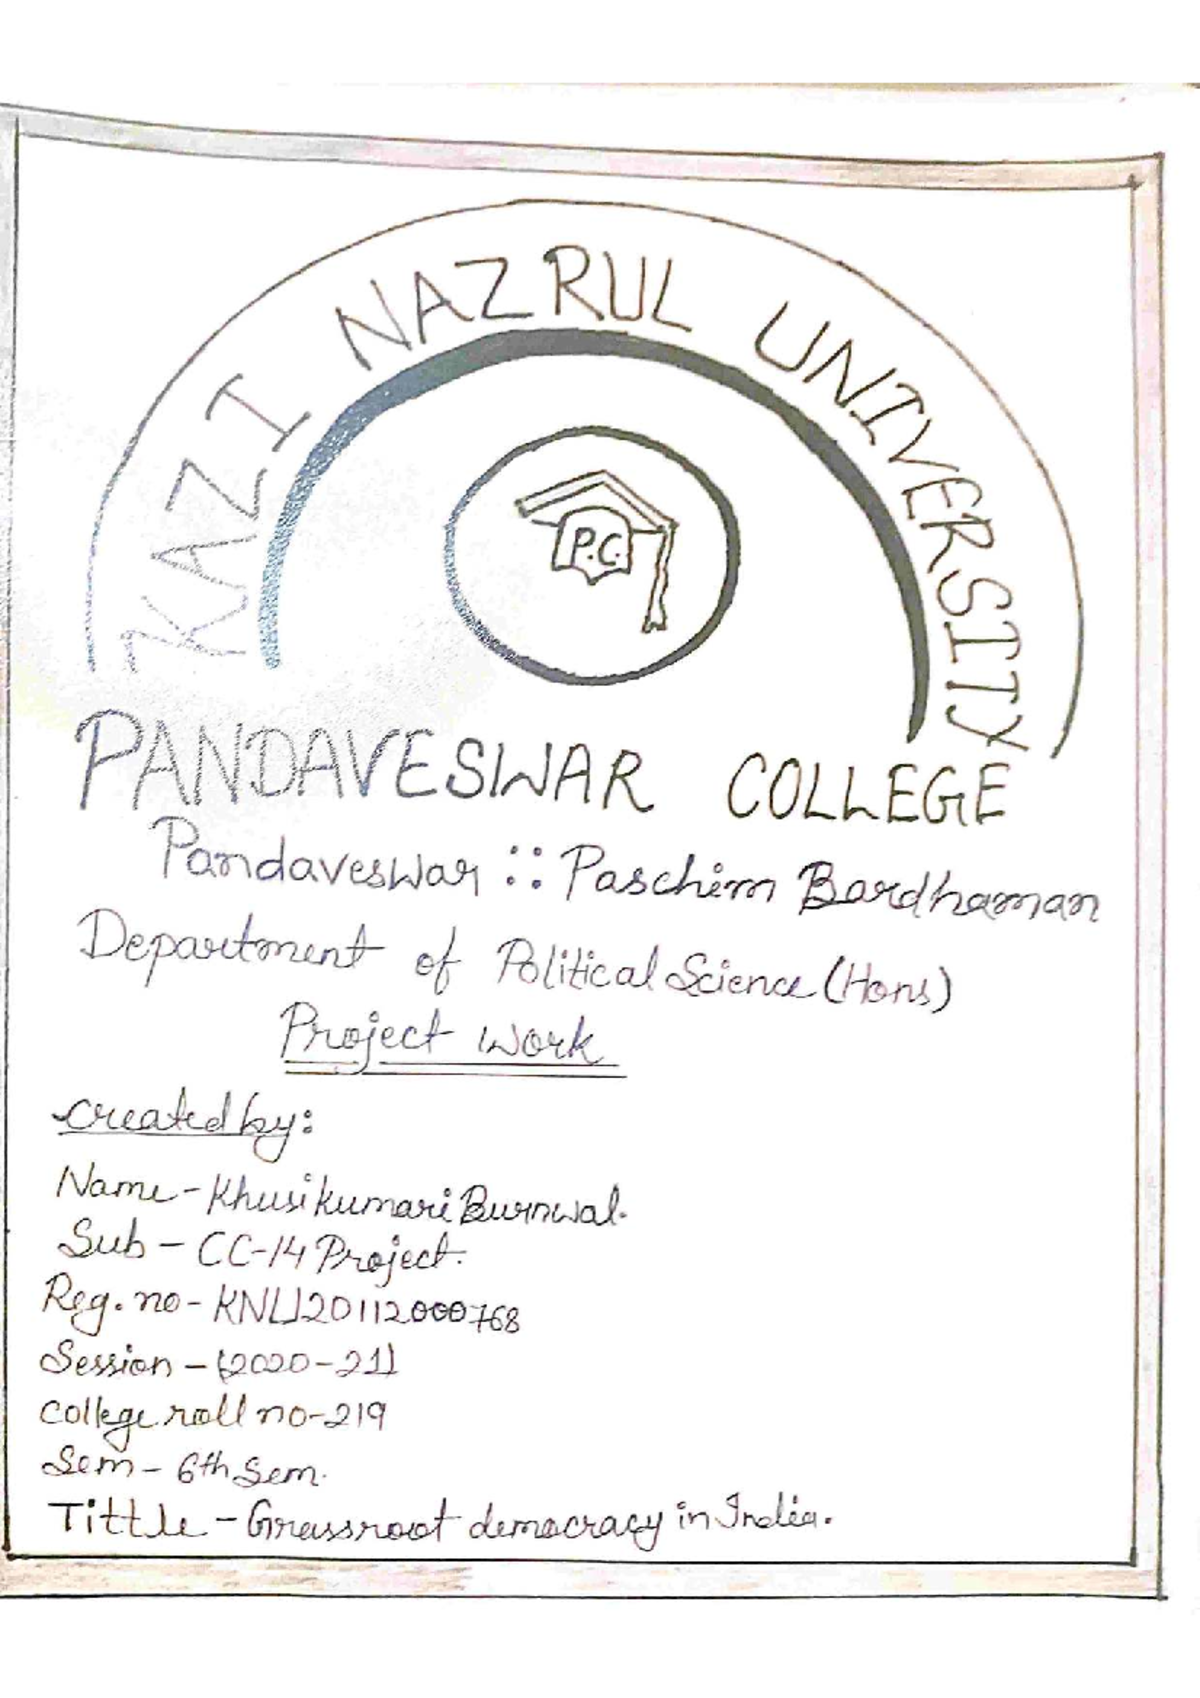 KAZI NAZRUL UNIVERSITY
P.C.
PANDAVESWAR COLLEGE
Pandaveswar :: Paschim Bardhaman
Department of Political Science (Hons)
Project Work
created by:
Name - Khusi kumari Burnwal.
Sub - CC-14 Project.
Reg. no - KNU20112000768
Session - (2020-21)
college roll no-219
Sem - 6th Sem.
Tittle - Grassroot democracy in India.